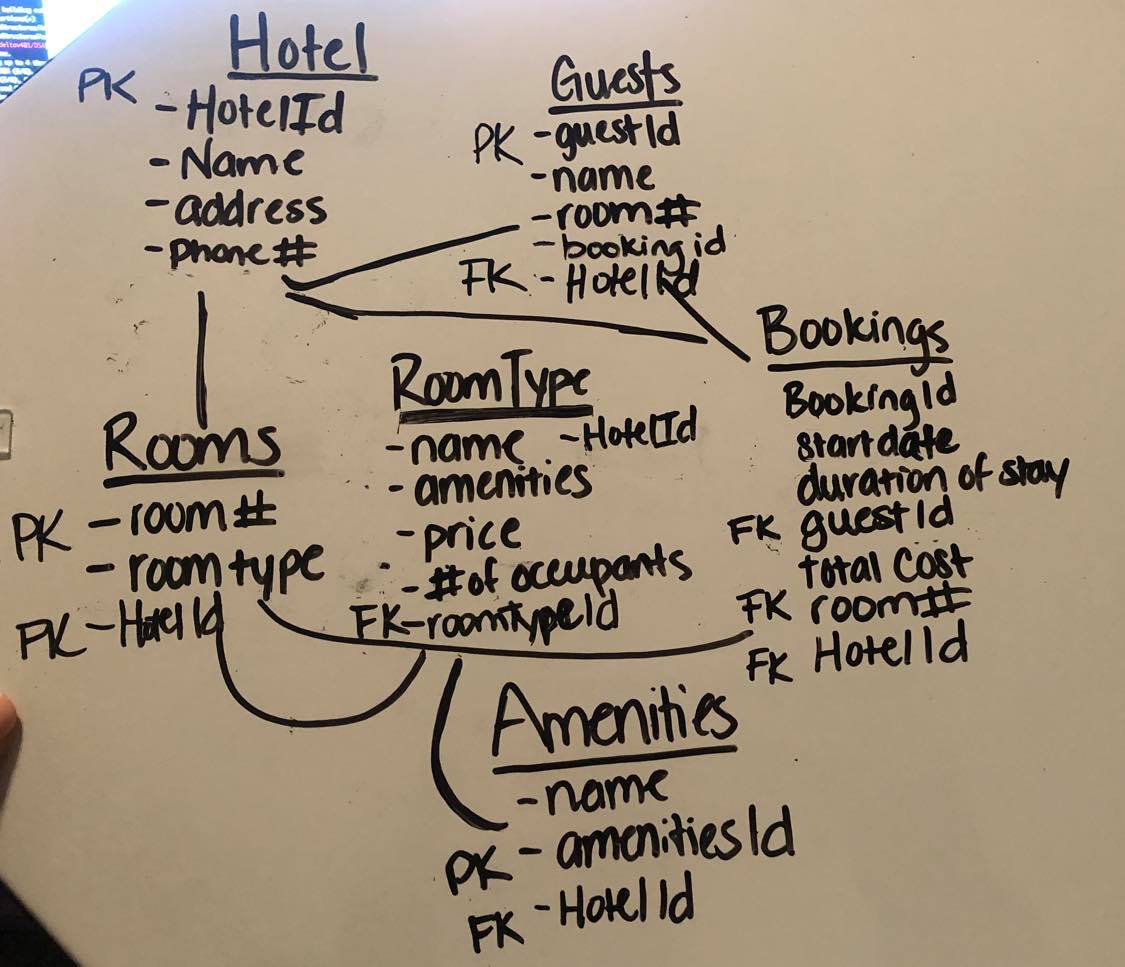 Hotel
PK - HotelId
- Name
- address
- phone #
Guests
PK - guestId
- name
- room #
- booking id
FK - HotelId
Bookings
BookingId
start date
duration of stay
FK guestId
total cost
FK room #
FK HotelId
RoomType
- name - HotelId
- amenities
- price
- # of occupants
FK - roomtypeId
Rooms
PK - room #
- room type
FK - HotelId
Amenities
- name
PK - amenitiesId
FK - HotelId